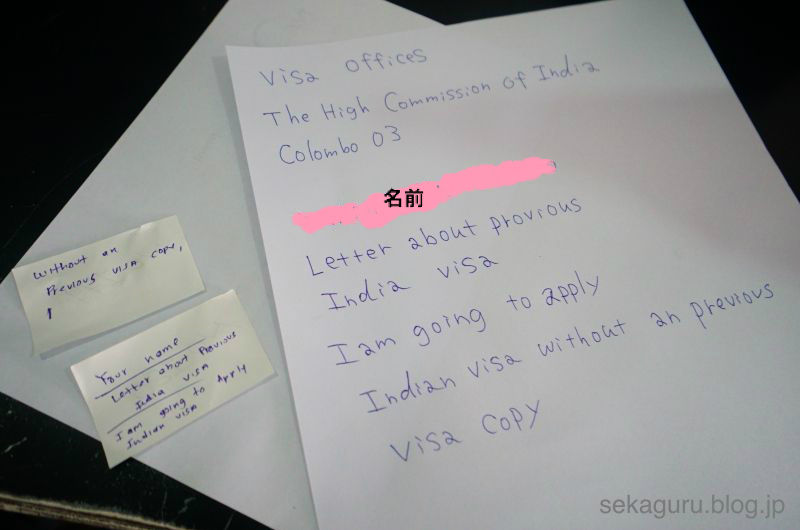 Visa offices
The High Commission of India
Colombo 03
名前
Letter about provious
India visa
I am going to apply
Indian visa without an previous
visa copy
without an
previous visa copy,
Your name
Letter about Previous
India visa
I am going to Apply
Indian visa
sekaguru.blog.jp